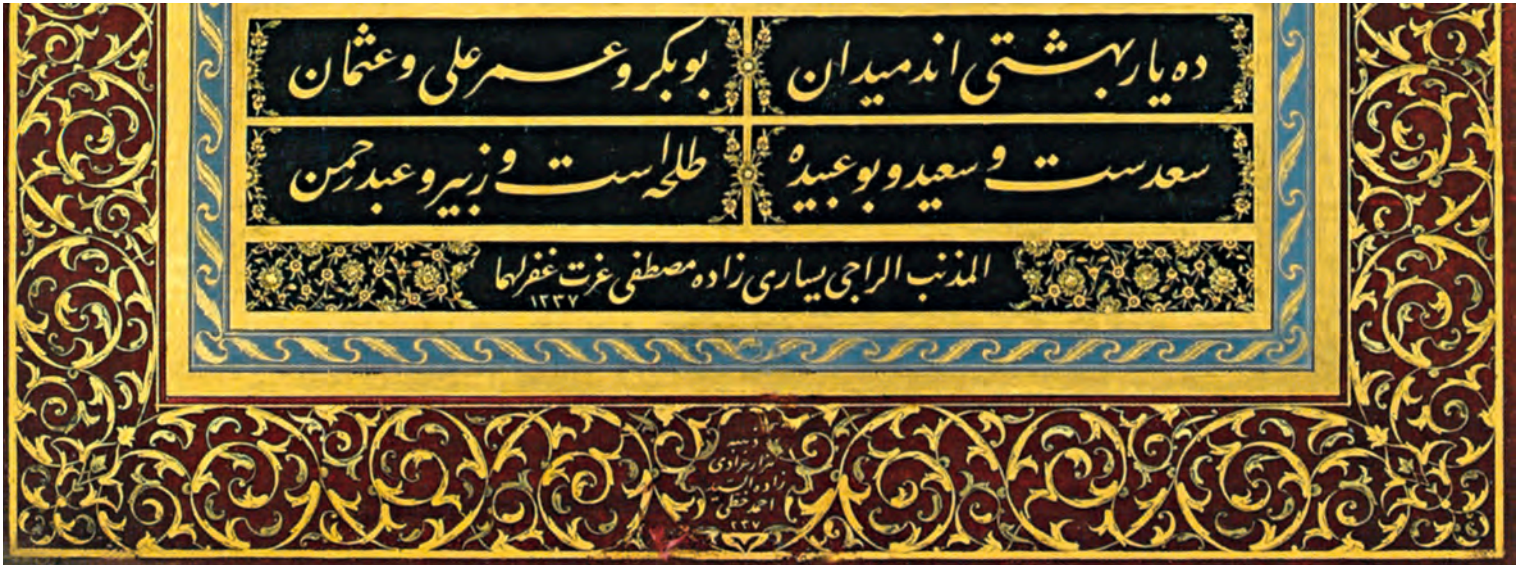 ده یار بهشتی اند میدان بوبکر و عمر علی و عثمان
سعدست و سعید و بوعبیده طلحه است و زبیر و عبدرحمن
المذنب الراجی یساری زاده مصطفی عزت غفرلهما
۱۲۳۷
زاده السید
احمد خطی